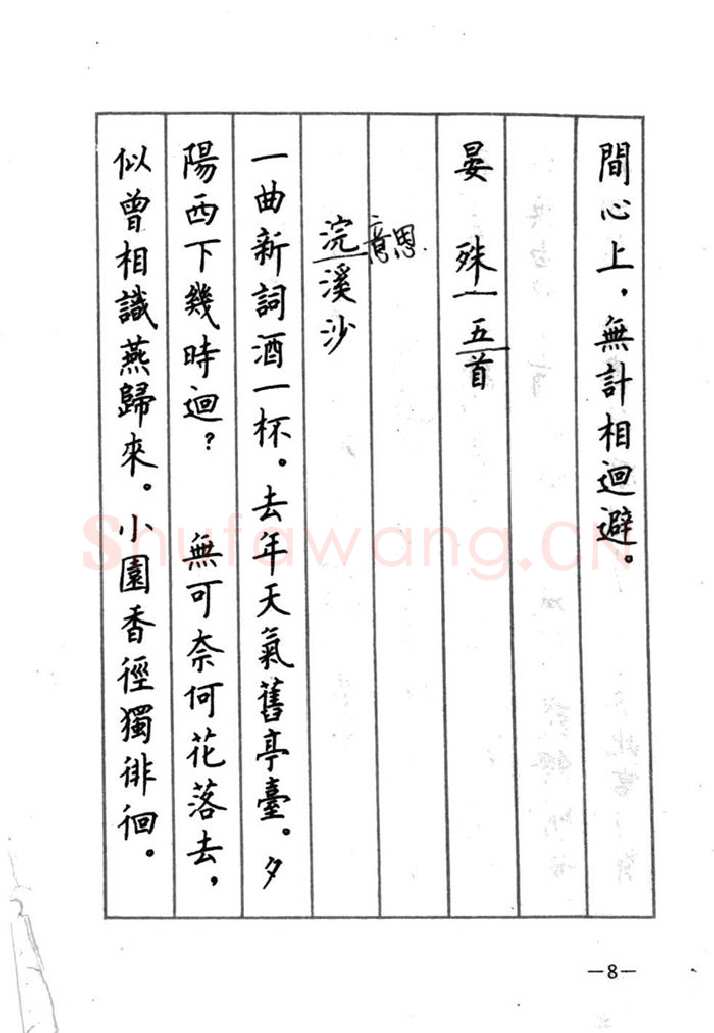 間心上，無計相迴避。
晏 殊 五首
意恩
浣溪沙
一曲新詞酒一杯。去年天氣舊亭臺。夕
陽西下幾時迴？ 無可奈何花落去，
似曾相識燕歸來。小園香徑獨徘徊。
Shufawang.CN
—8—